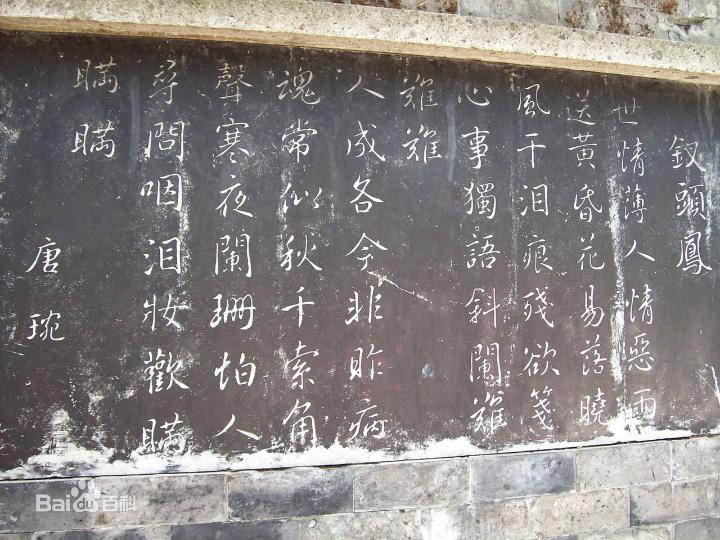 釵頭鳳
世情薄人情惡雨
送黃昏花易落曉
風干泪痕殘欲箋
心事獨語斜闌難
難難
人成各今非昨病
魂常似秋千索角
聲寒夜闌珊怕人
尋問咽泪妝歡瞞
瞞瞞
唐琬
Baidu百科